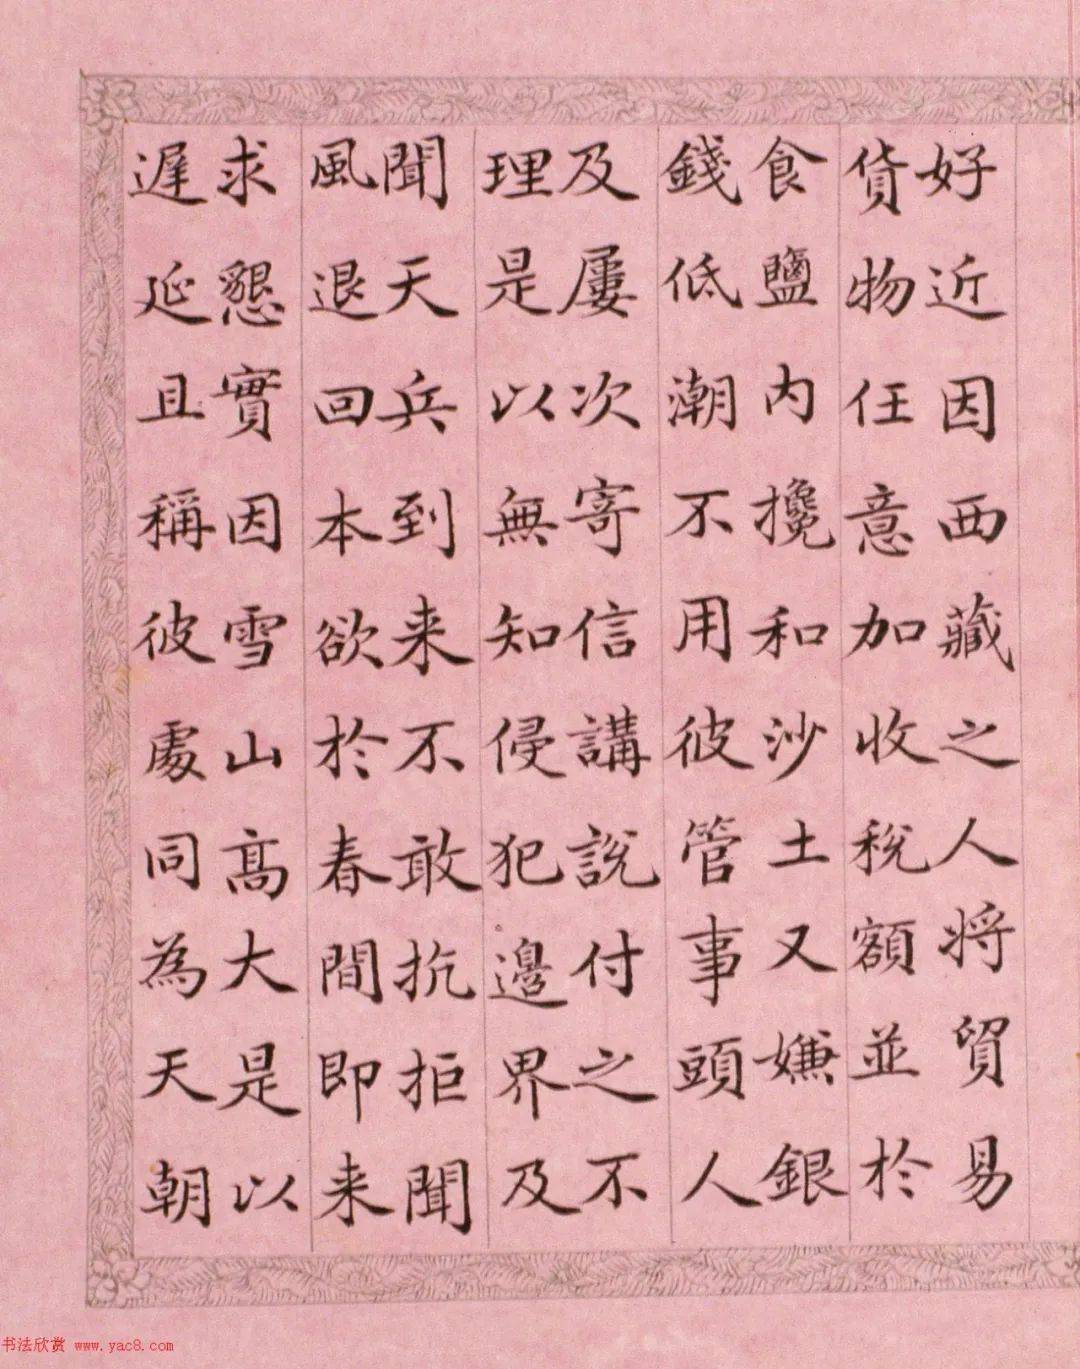 好近因西藏之人將貿易
貨物任意加收稅額並於
食鹽內攙和沙土又嫌銀
錢低潮不用彼管事頭人
及屢次寄信講說付之不
理是以無知侵犯邊界及
聞天兵到来不敢抗拒聞
風退回本欲於春間即来
求懇實因雪山高大是以
遲延且稱彼處同為天朝
书法欣赏 www.yac8.com